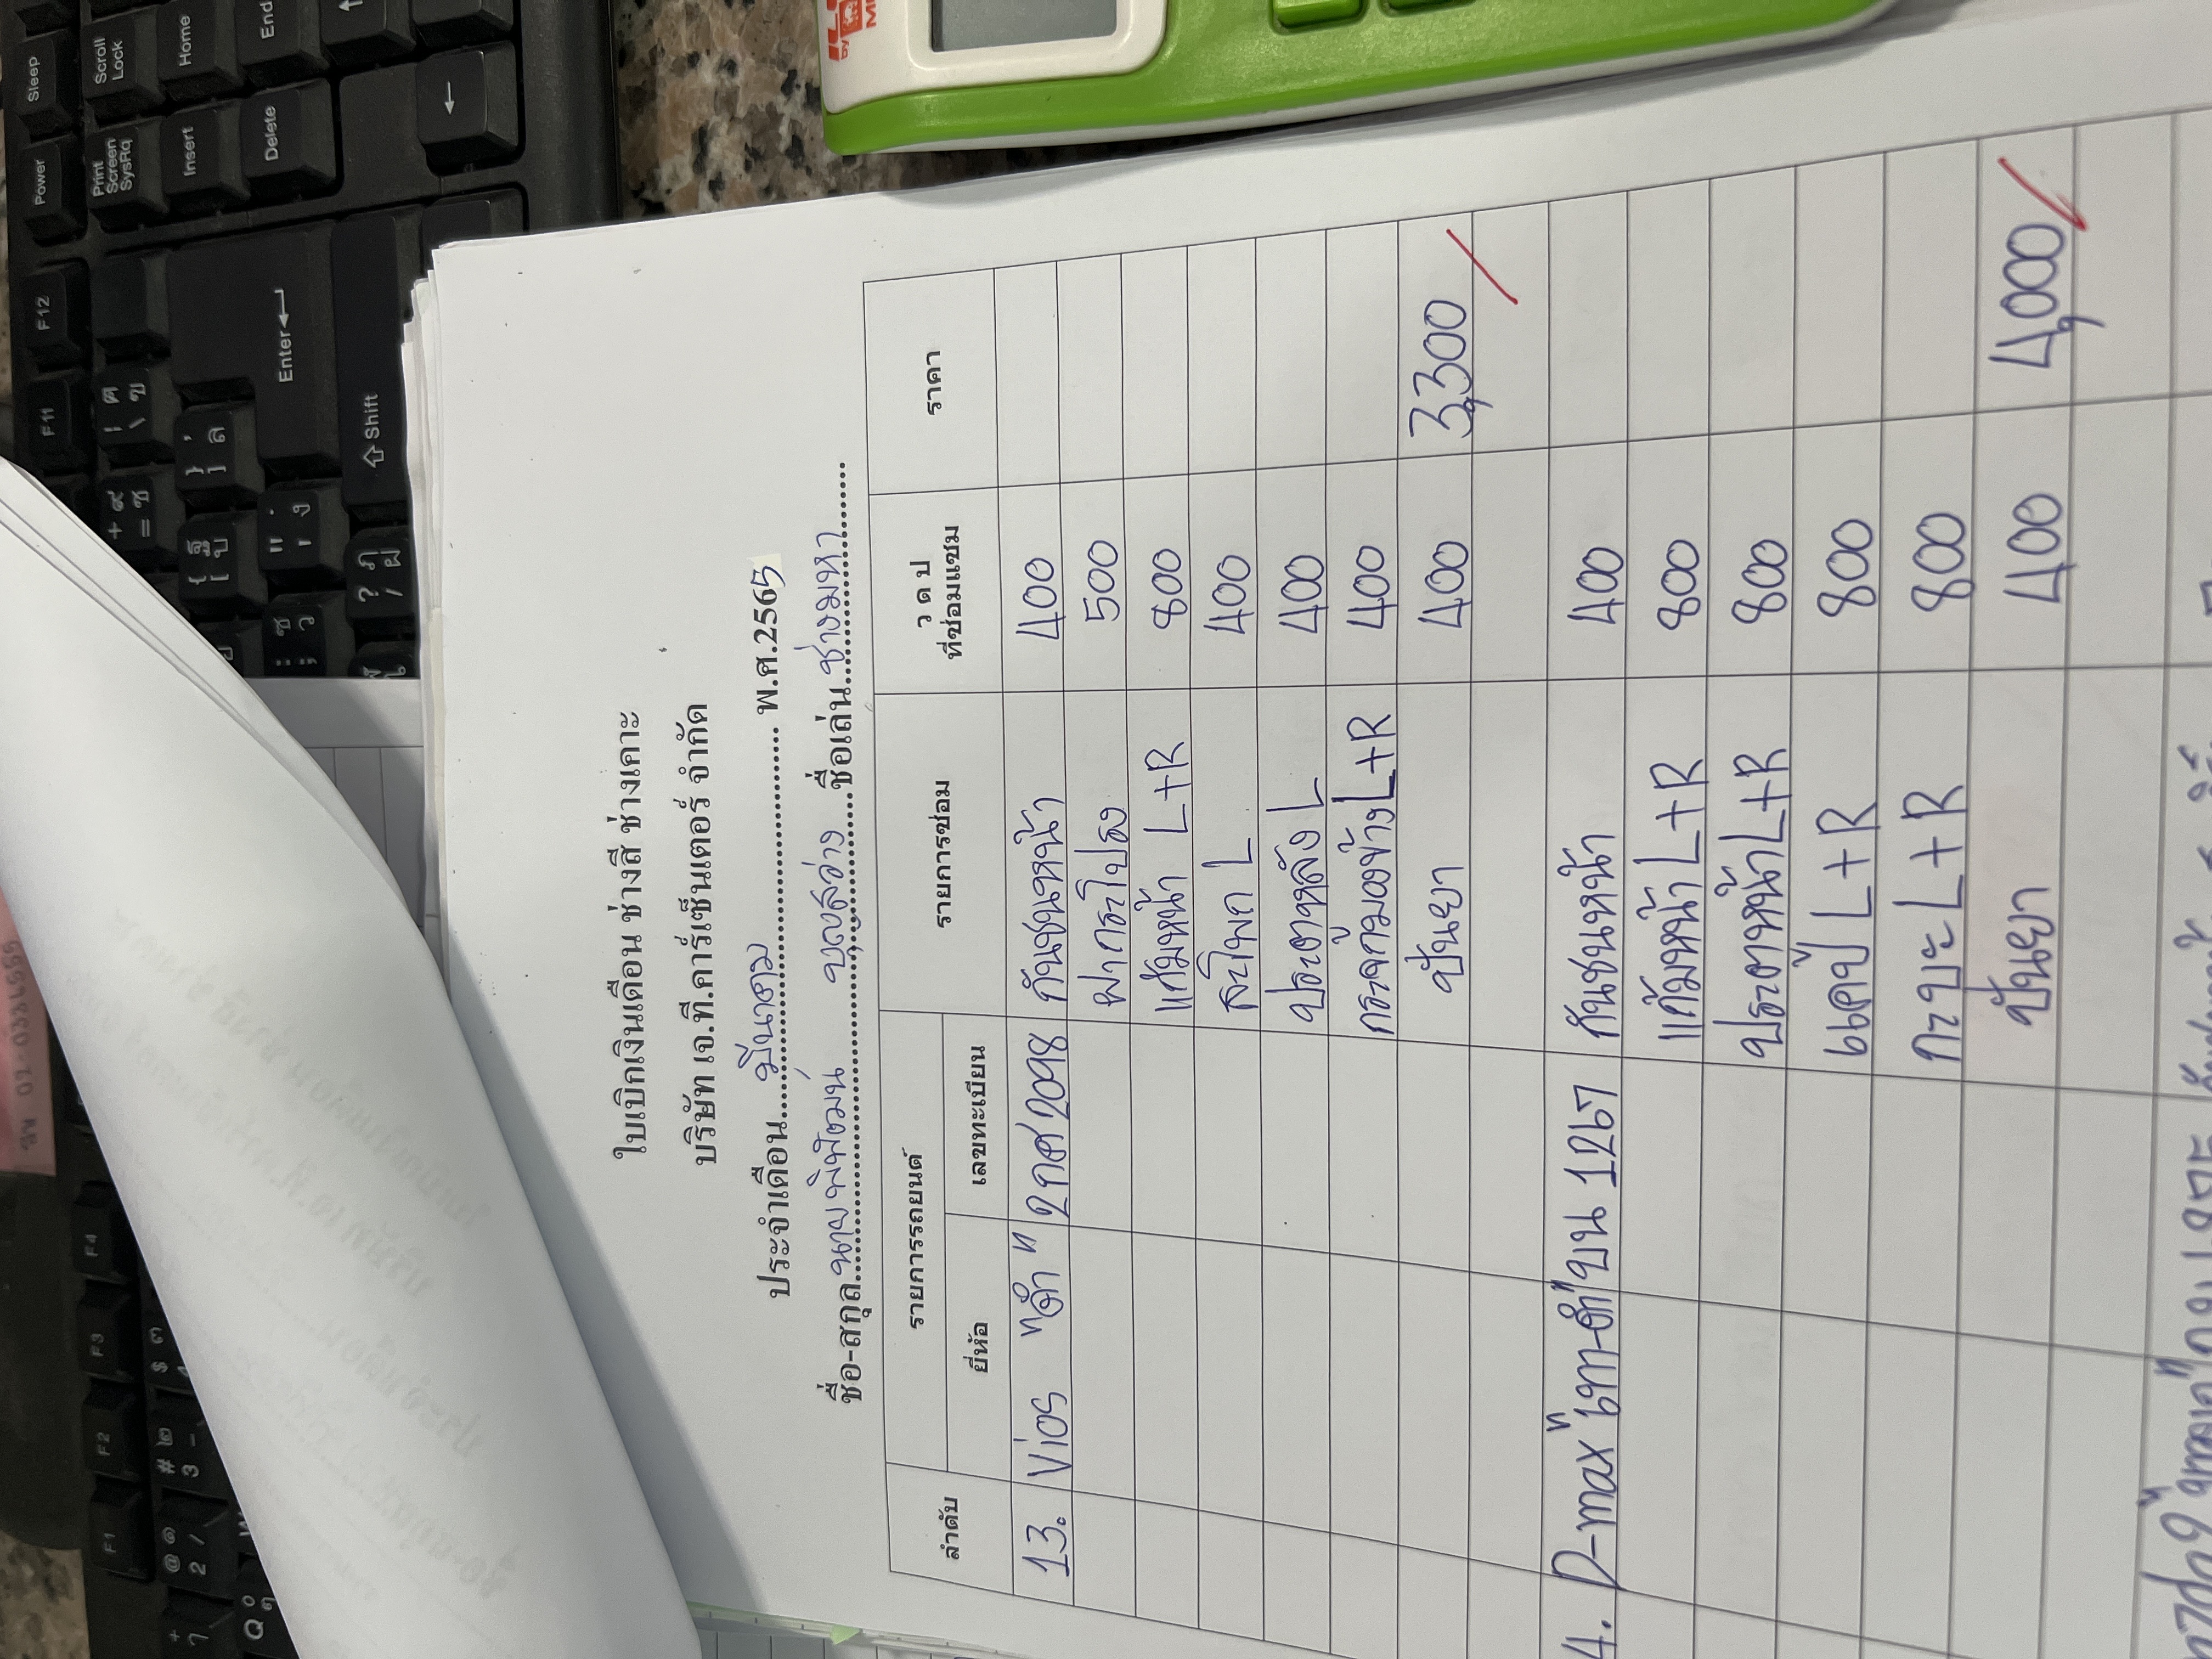 ใบเบิกเงินเดือน ช่างสี ช่างเคาะ
บริษัท เจ.ที.คาร์เซ็นเตอร์ จำกัด
ประจำเดือน....มีนาคม.... พ.ศ.2565
ชื่อ-สกุล..นายพิพัฒน์ บุญสว่าง...ชื่อเล่น..ช่างมหา....
ลำดับ รายการรถยนต์ รายการซ่อม ว ด ป ที่ซ่อมแซม ราคา
ยี่ห้อ เลขทะเบียน
13. Vios "ดำ" 2กศ 2098 กันชนหน้า 400
ฝากระโปรง 500
แก้มหน้า L+R 800
สะโพก L 400
ประตูหลัง L 400
กระจกมองข้าง L+R 400
ปั่นยา 400 3,300
4. D-max "เทา-ดำ" บน 1267 กันชนหน้า 400
แก้มหน้า L+R 800
ประตูหน้า L+R 800
แคป L+R 800
กะบะ L+R 800
ปั่นยา 400 4,000
Sleep
Power
Scroll Lock
Print Screen SysRq
Home
Insert
End
Delete
F12
F11
Enter
Shift
F4
F3
F2
F1